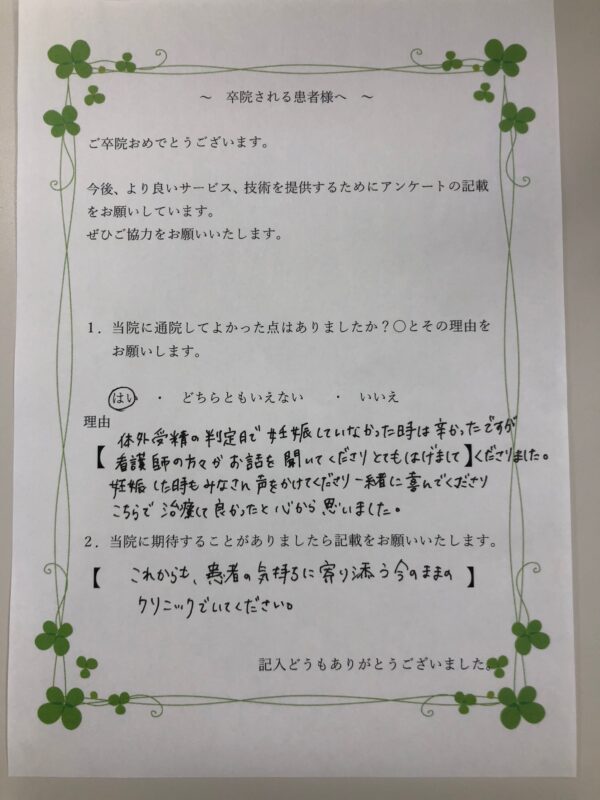 ～　卒院される患者様へ　～
ご卒院おめでとうございます。
今後、より良いサービス、技術を提供するためにアンケートの記載
をお願いしています。
ぜひご協力をお願いいたします。
１．当院に通院してよかった点はありましたか？〇とその理由を
お願いします。
はい　・　どちらともいえない　・　いいえ
理由
体外受精の判定日で妊娠していなかった時は辛かったですが
【看護師の方々がお話を聞いてくださりとてもはげまして】くださりました。
妊娠した時もみなさん声をかけてくださり一緒に喜んでくださり
こちらで治療して良かったと心から思いました。
２．当院に期待することがありましたら記載をお願いいたします。
【これからも、患者の気持ちに寄り添う今のままの】
クリニックでいてください。
記入どうもありがとうございました。